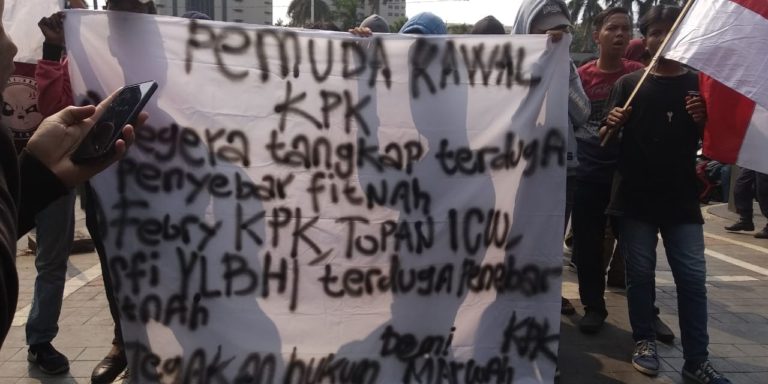 PEMUDA KAWAL
KPK
Segera tangkap terduga
penyebar fitNah
Febry KPK, ToPAN ICW,
sfi YLBHI terduga Penebar
itnah
Demi KPK
TegaKan huKum MARWAh